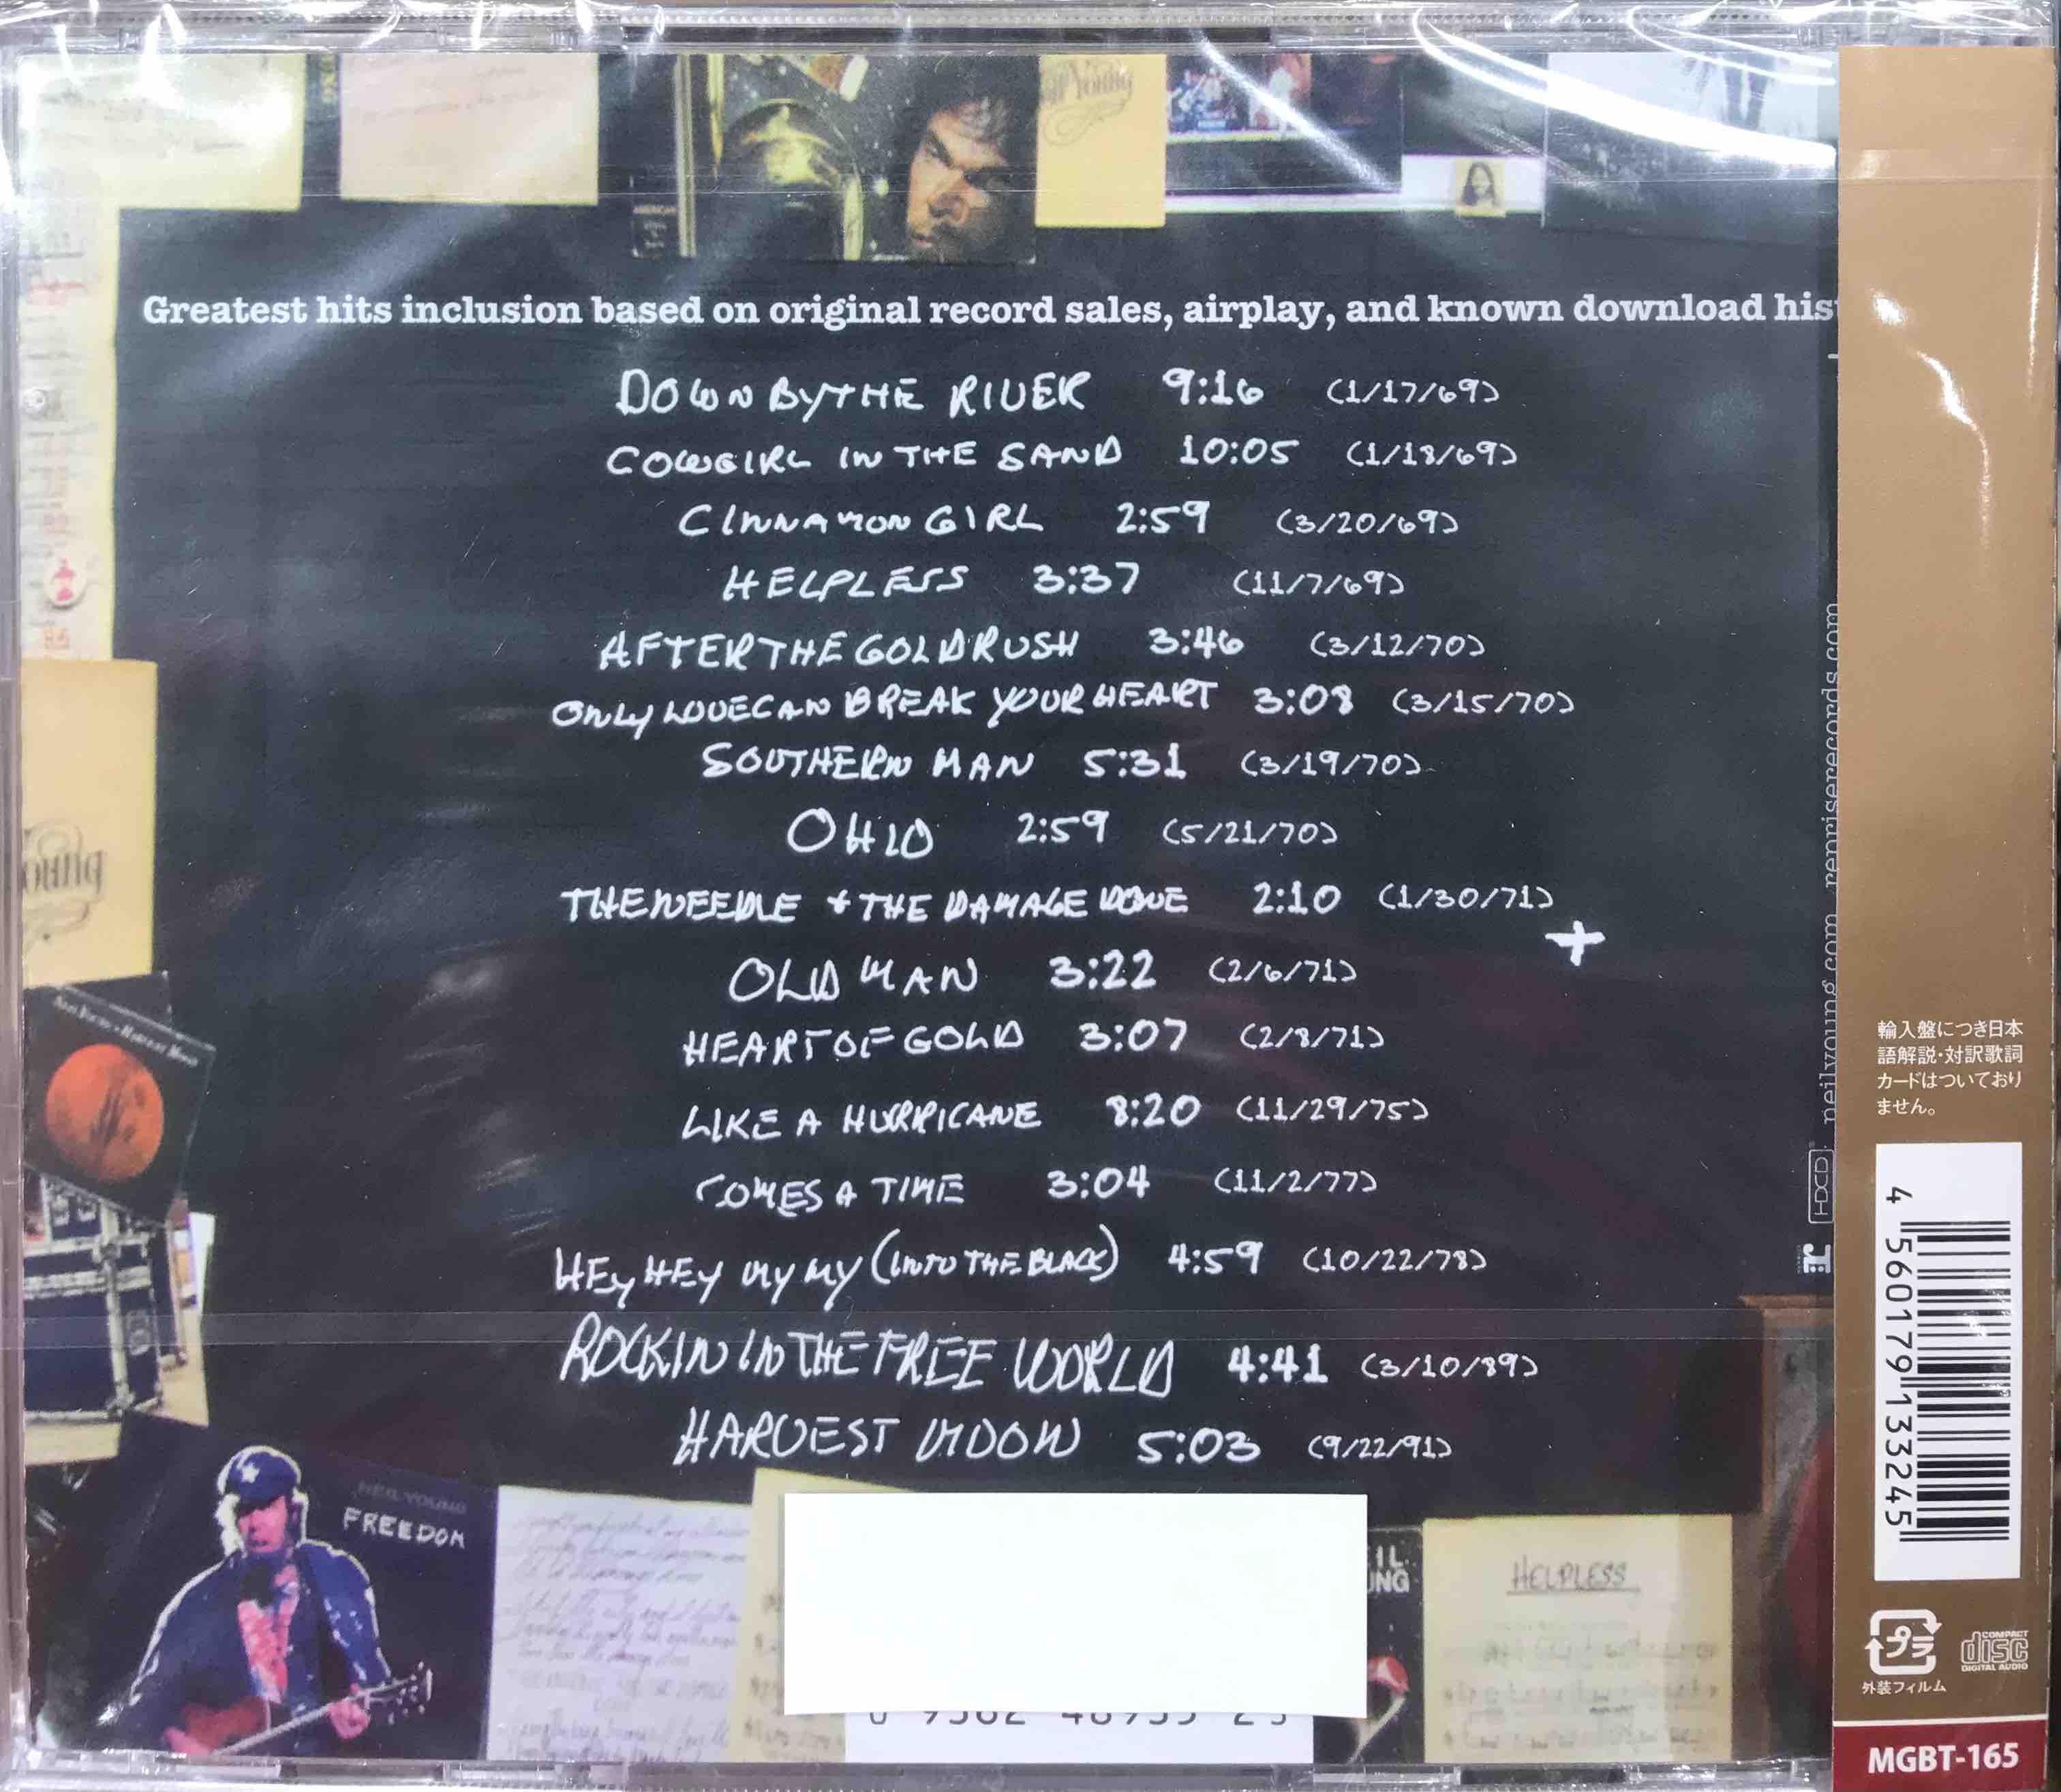 Young
Greatest hits inclusion based on original record sales, airplay, and known download his
DOWN BY THE RIVER 9:16 (1/17/69)
COWGIRL IN THE SAND 10:05 (1/18/69)
CINNAMON GIRL 2:59 (3/20/69)
HELPLESS 3:37 (11/7/69)
AFTER THE GOLDRUSH 3:46 (3/12/70)
ONLY LOVE CAN BREAK YOUR HEART 3:08 (3/15/70)
SOUTHERN MAN 5:31 (3/19/70)
OHIO 2:59 (5/21/70)
THE NEEDLE + THE DAMAGE DONE 2:10 (1/30/71)
+
OLD MAN 3:22 (2/6/71)
HEART OF GOLD 3:07 (2/8/71)
LIKE A HURRICANE 8:20 (11/29/75)
COMES A TIME 3:04 (11/2/77)
HEY, HEY MY MY (INTO THE BLACK) 4:59 (10/22/78)
ROCKIN IN THE FREE WORLD 4:41 (3/10/89)
HARVEST MOON 5:03 (9/22/91)
oung
Neil Young - Harvest Moon
NEIL YOUNG
FREEDOM
IL
UNG
HELPLESS
HDCD neilyoung.com repriserecords.com
r
輸入盤につき日本
語解説・対訳歌詞
カードはついており
ません。
4 560179 133245
プラ
外装フィルム
COMPACT
disc
DIGITAL AUDIO
MGBT-165